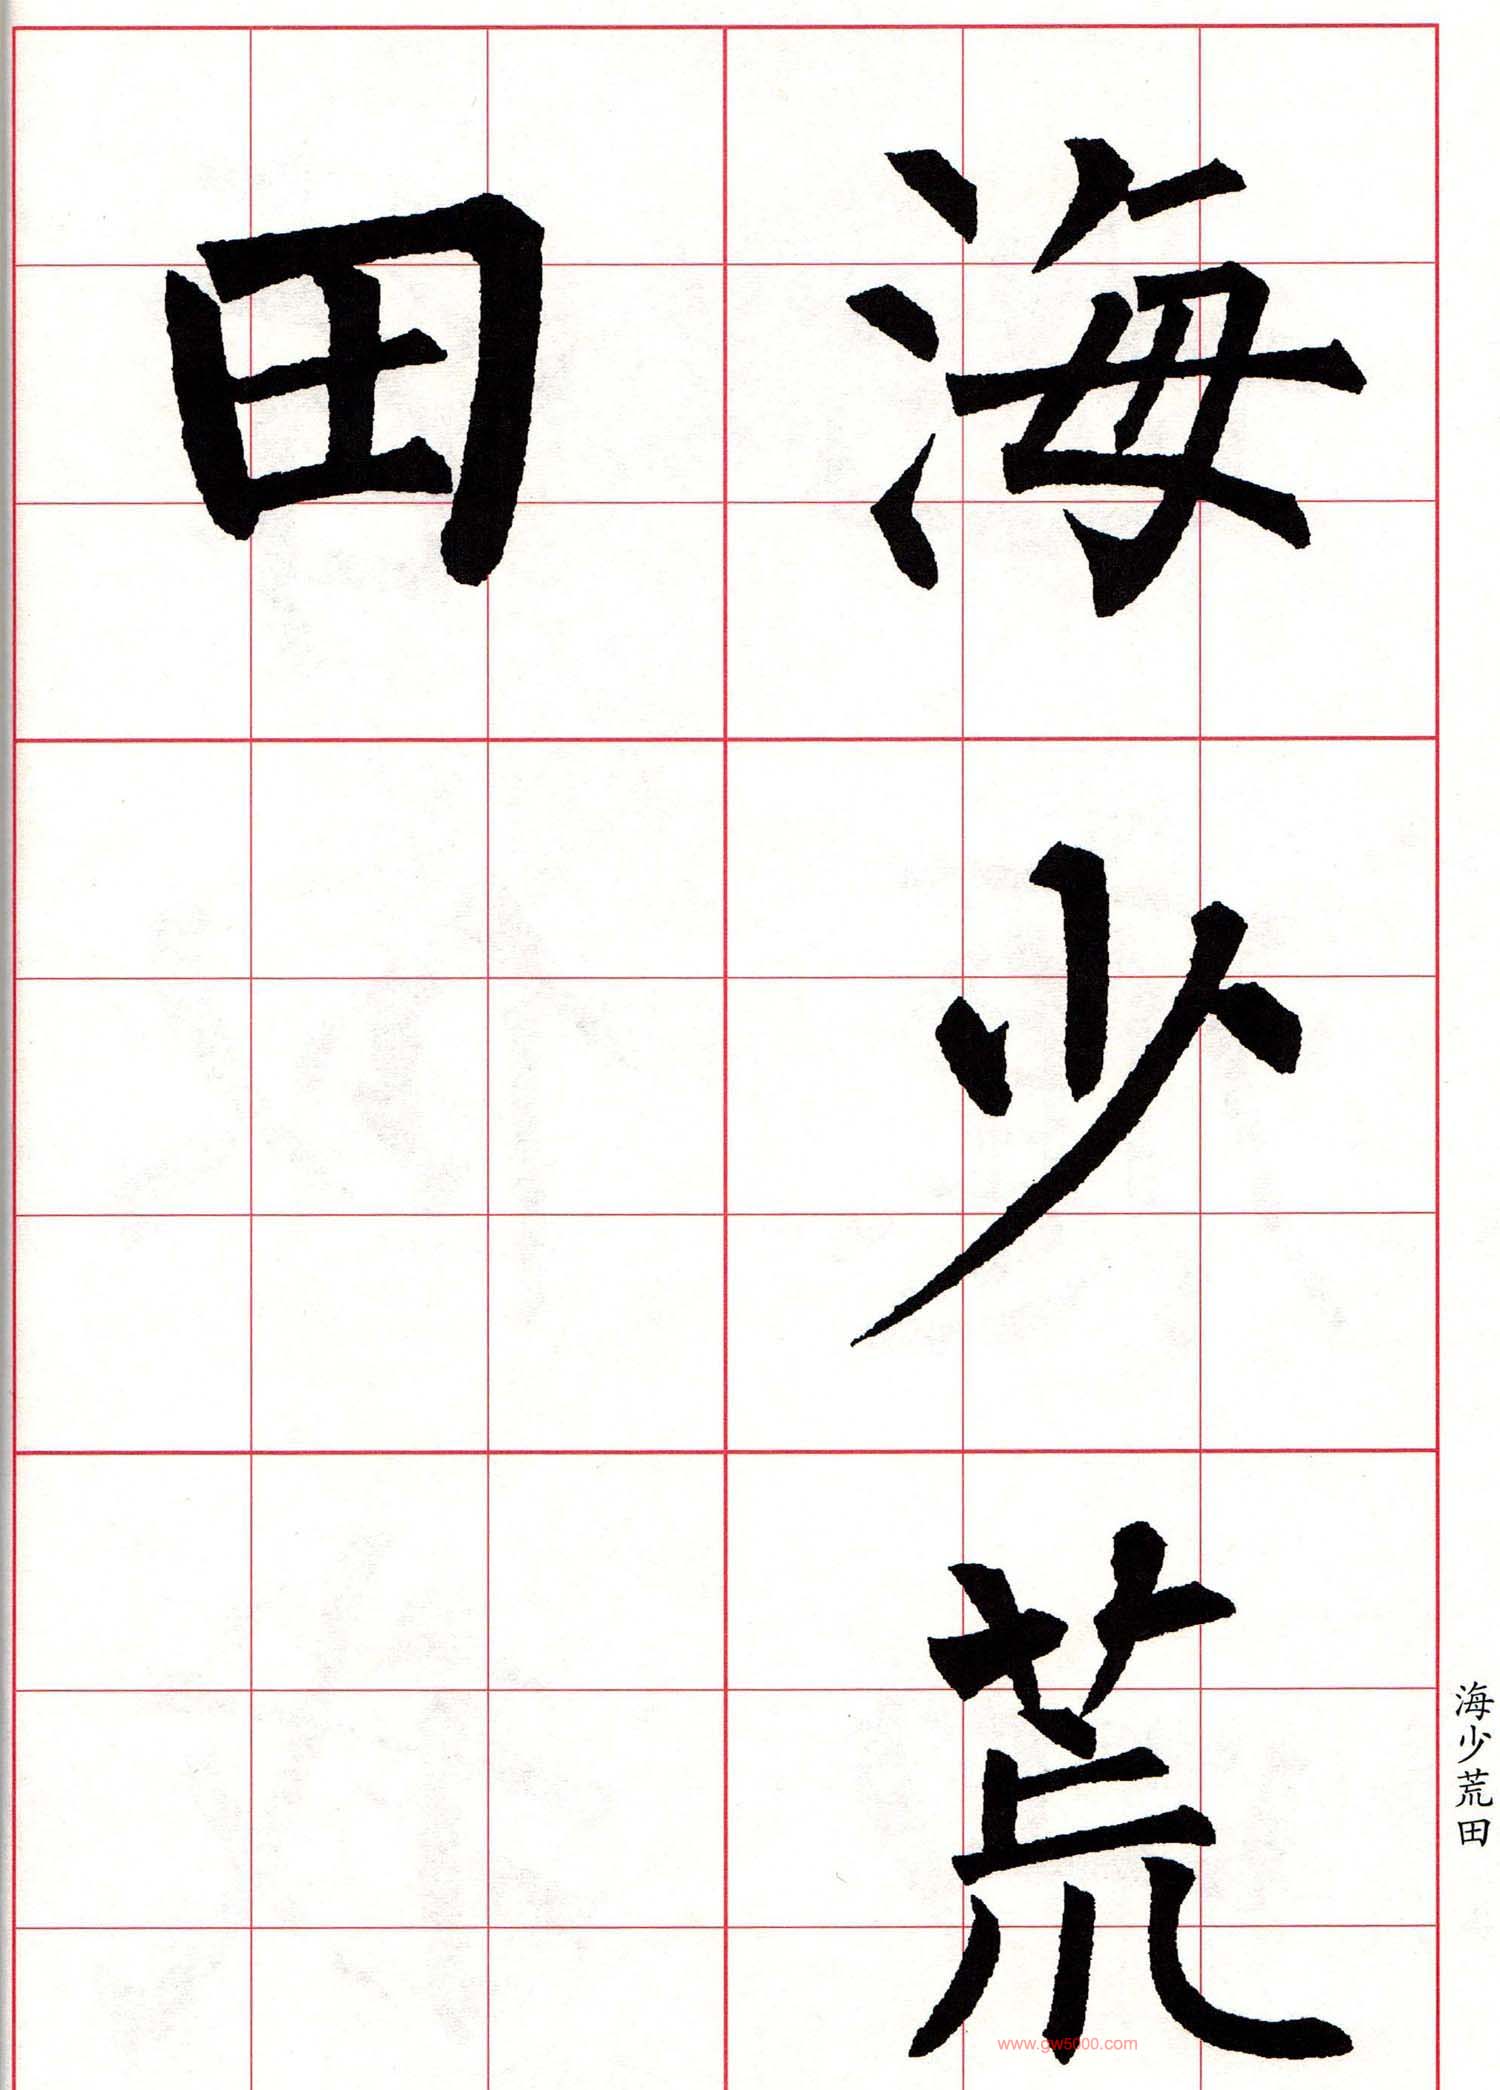 海少荒
田
海少荒田
www.gw5000.com